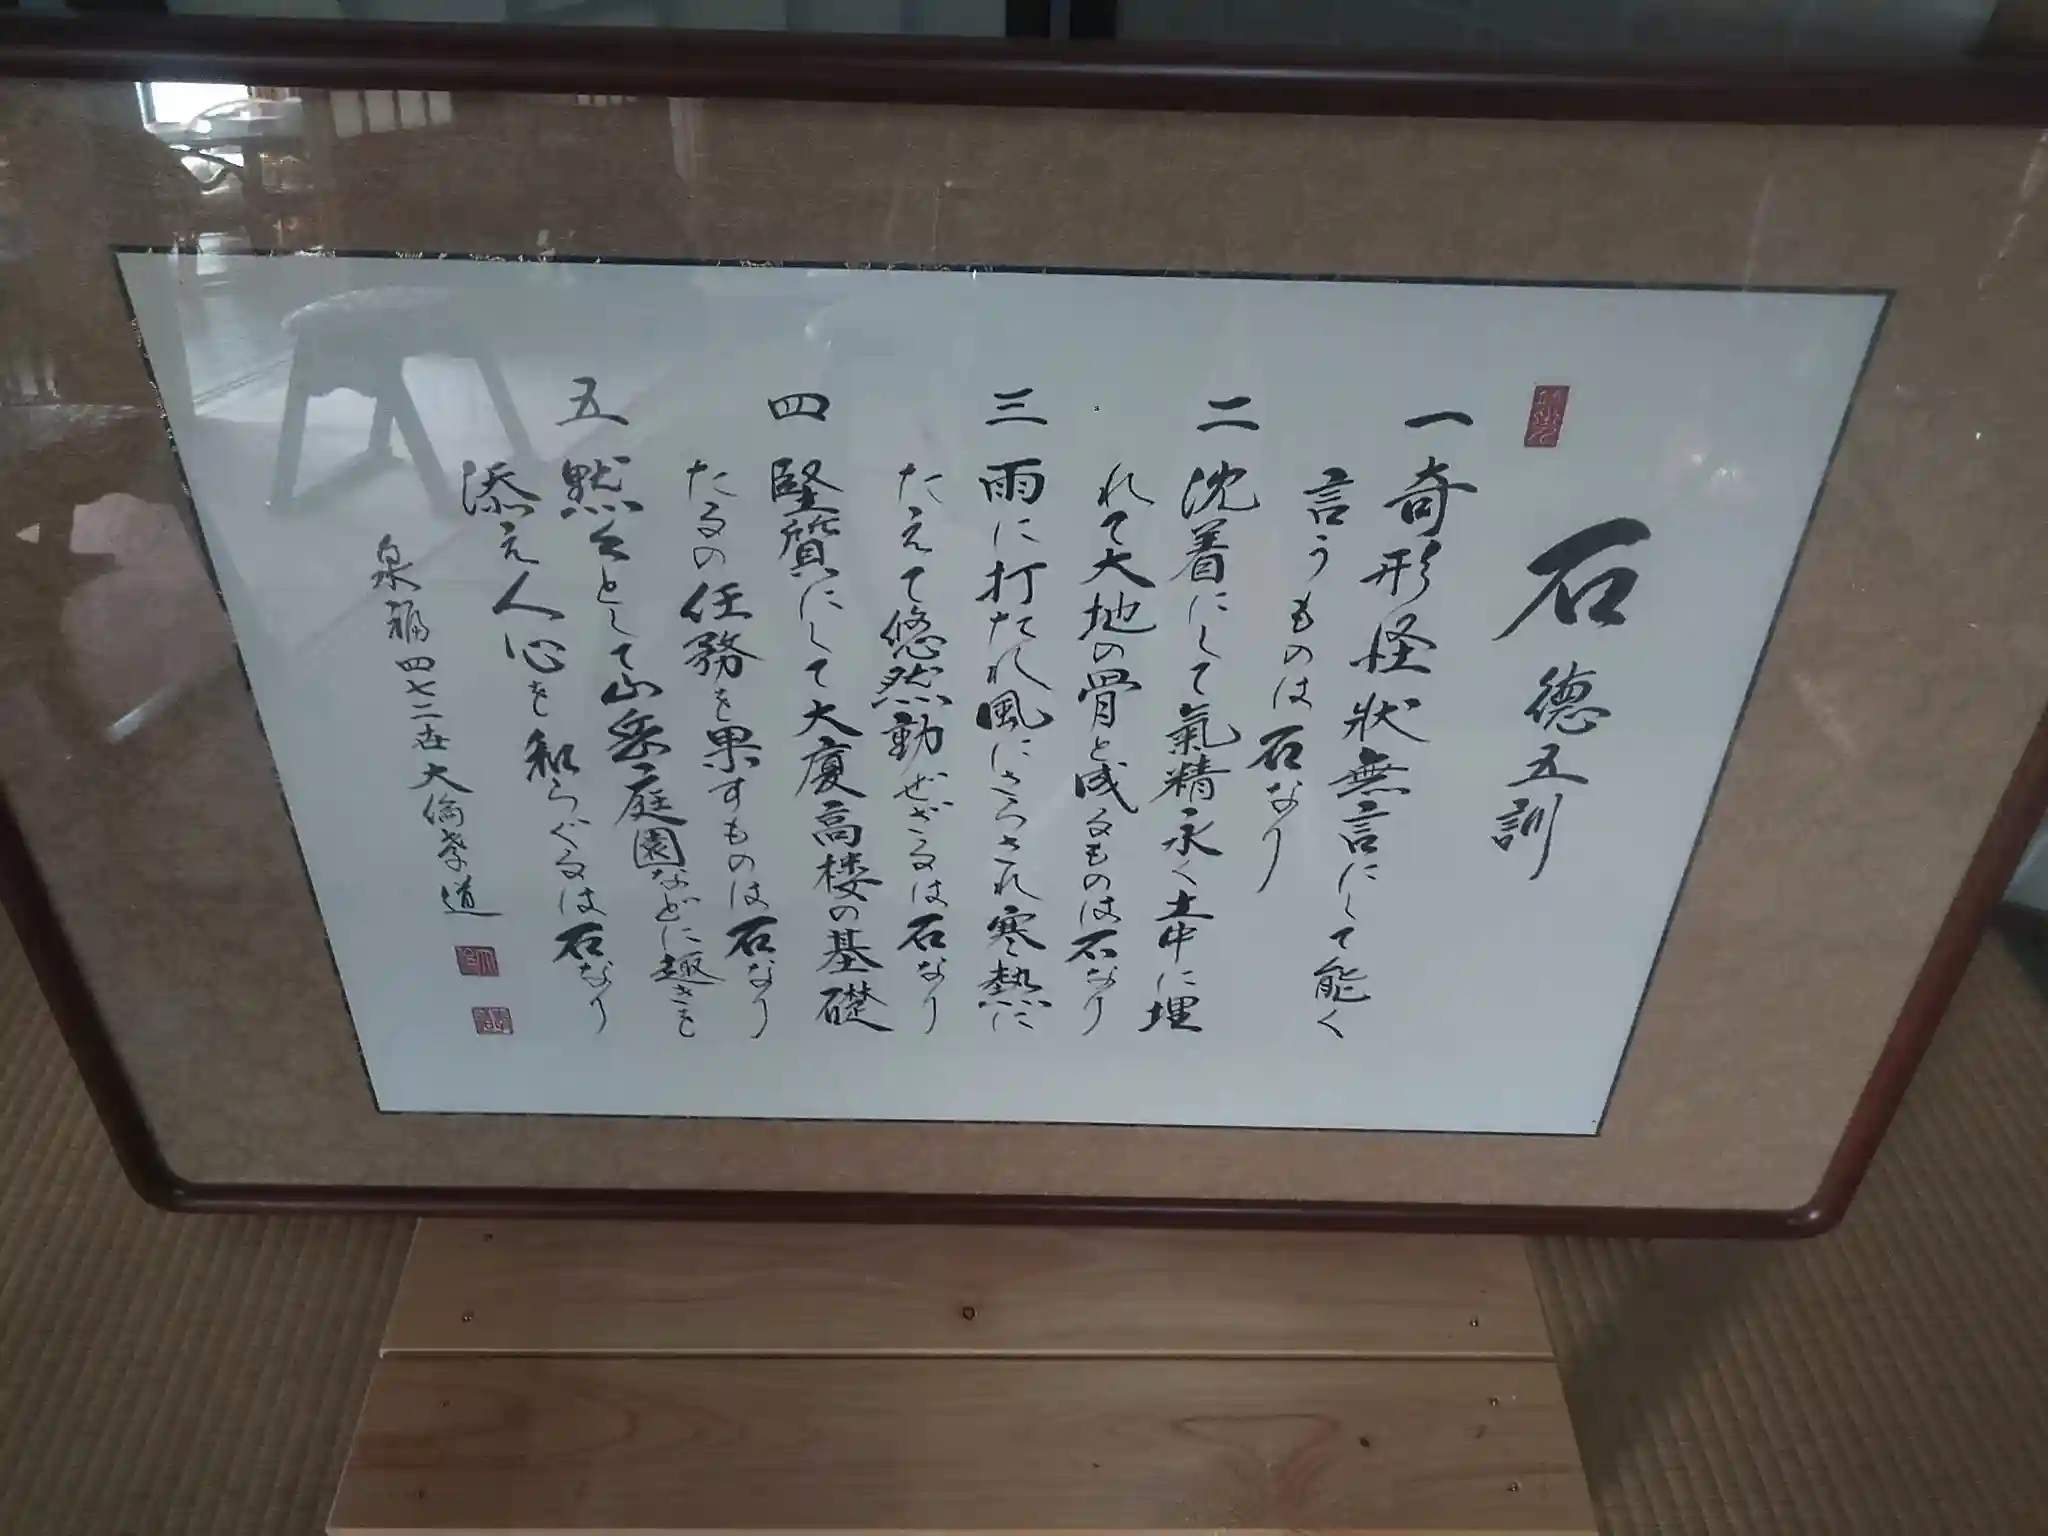 石德五訓
一 奇形怪状無言にして能く
言うものは石なり
二 沈着にして氣精永く土中に埋
れて大地の骨と成るものは石なり
三 雨に打たれ風にさらされ寒熱に
たえて悠然動ぜざるは石なり
四 堅質にして大廈高楼の基礎
たるの任務を果すものは石なり
五 黙々として山岳庭園などに趣きを
添え人心を和らぐるは石なり
泉福四七二世大倫孝道